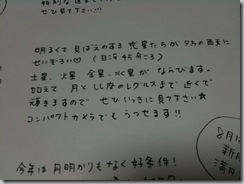 ぜひ見て下さい!!!
明るくて見ばえのする惑星たちが夕方の西天に
せいぞろい♡♡ (日没45分ごろ)
土星、火星、金星、水星が ならびます。
加えて 月と しし座のレグルスまで 近くで
輝きますので ぜひ いっきに見て下さい☆
コンパクトカメラでも うつせます!!
8月1
新
満月
今年は 月明かりもなく 好条件!